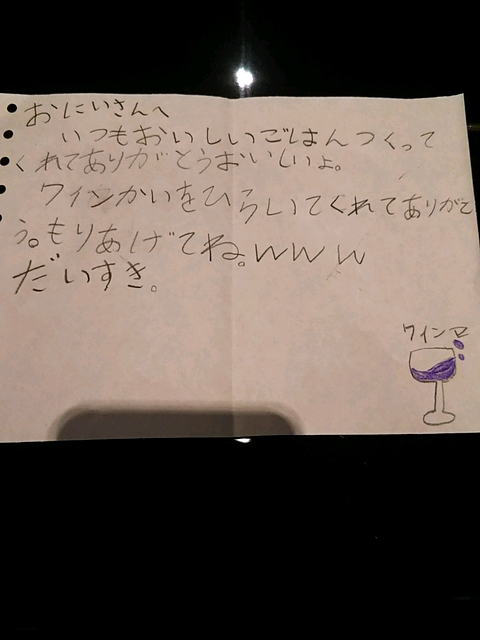 おにいさんへ
いつもおいしいごはんつくって
くれてありがとうおいしいよ。
ワインかいをひらいてくれてありがと
う。もりあげてね。www
だいすき。
ワイン